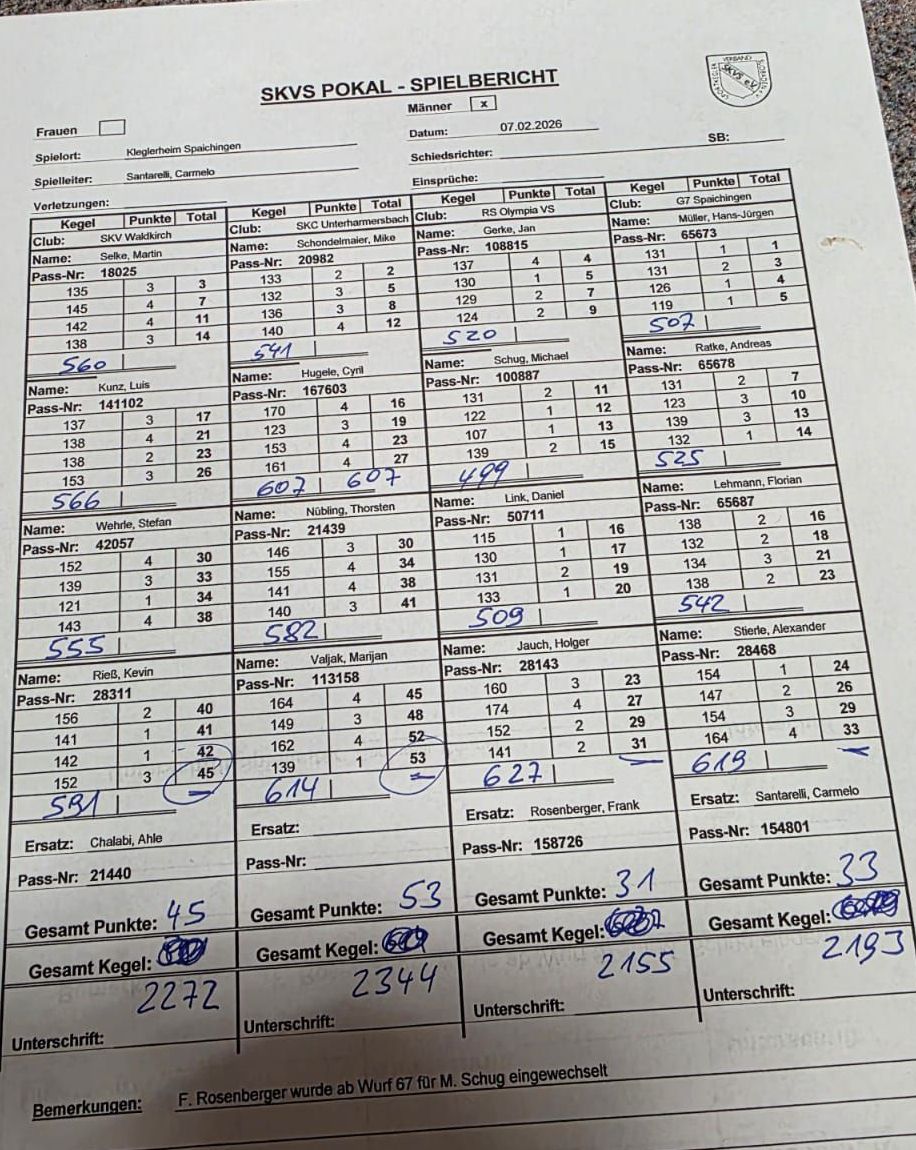 SKVS POKAL - SPIELBERICHT
VERBAND SKVS e.V. SPORTKEGLER SÜDBADEN
Frauen
Männer x
Spielort: Kleglerheim Spaichingen
Datum: 07.02.2026
Spielleiter: Santarelli, Carmelo
Schiedsrichter: SB:
Verletzungen:
Einsprüche:
Kegel Punkte Total Kegel Punkte Total Kegel Punkte Total Kegel Punkte Total
Club: SKV Waldkirch Club: SKC Unterharmersbach Club: RS Olympia VS Club: G7 Spaichingen
Name: Selke, Martin Name: Schondelmaier, Mike Name: Gerke, Jan Name: Müller, Hans-Jürgen
Pass-Nr: 18025 Pass-Nr: 20982 Pass-Nr: 108815 Pass-Nr: 65673
135 3 3 133 2 2 137 4 4 131 1 1
145 4 7 132 3 5 130 1 5 131 2 3
142 4 11 136 3 8 129 2 7 126 1 4
138 3 14 140 4 12 124 2 9 119 1 5
560 541 520 507
Name: Kunz, Luis Name: Hugele, Cyril Name: Schug, Michael Name: Ratke, Andreas
Pass-Nr: 141102 Pass-Nr: 167603 Pass-Nr: 100887 Pass-Nr: 65678
137 3 17 170 4 16 131 2 11 131 2 7
138 4 21 123 3 19 122 1 12 123 3 10
138 2 23 153 4 23 107 1 13 139 3 13
153 3 26 161 4 27 139 2 15 132 1 14
566 607 607 499 525
Name: Wehrle, Stefan Name: Nübling, Thorsten Name: Link, Daniel Name: Lehmann, Florian
Pass-Nr: 42057 Pass-Nr: 21439 Pass-Nr: 50711 Pass-Nr: 65687
152 4 30 146 3 30 115 1 16 138 2 16
139 3 33 155 4 34 130 1 17 132 2 18
121 1 34 141 4 38 131 2 19 134 3 21
143 4 38 140 3 41 133 1 20 138 2 23
555 582 509 542
Name: Rieß, Kevin Name: Valjak, Marijan Name: Jauch, Holger Name: Stierle, Alexander
Pass-Nr: 28311 Pass-Nr: 113158 Pass-Nr: 28143 Pass-Nr: 28468
156 2 40 164 4 45 160 3 23 154 1 24
141 1 41 149 3 48 174 4 27 147 2 26
142 1 42 162 4 52 152 2 29 154 3 29
152 3 45 139 1 53 141 2 31 164 4 33
591 614 627 619
Ersatz: Chalabi, Ahle Ersatz: Ersatz: Rosenberger, Frank Ersatz: Santarelli, Carmelo
Pass-Nr: 21440 Pass-Nr: Pass-Nr: 158726 Pass-Nr: 154801
Gesamt Punkte: 45 Gesamt Punkte: 53 Gesamt Punkte: 31 Gesamt Punkte: 33
Gesamt Kegel: Gesamt Kegel: Gesamt Kegel: Gesamt Kegel:
2272 2344 2155 2193
Unterschrift: Unterschrift: Unterschrift: Unterschrift:
Bemerkungen: F. Rosenberger wurde ab Wurf 67 für M. Schug eingewechselt